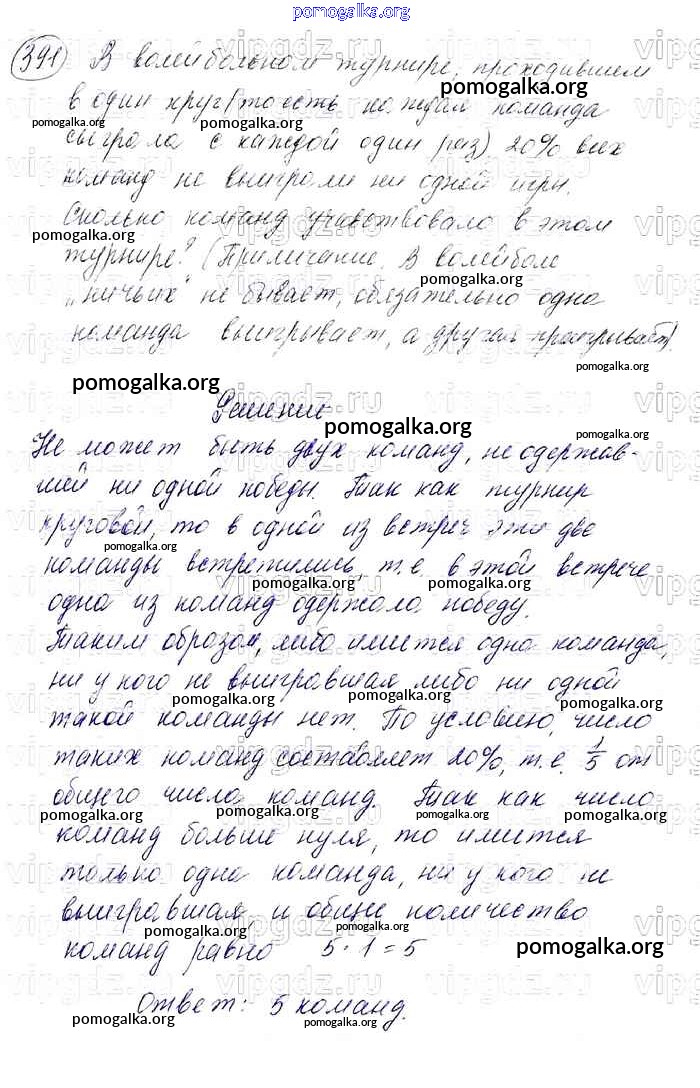 pomogalka.org
391) В волейбольном турнире, проходившем
в один круг (то есть каждая команда
сыграла с каждой один раз) 20% всех
команд не выиграли ни одной игры.
Сколько команд участвовало в этом
турнире? (Примечание. В волейболе
"ничьих" не бывает, обязательно одна
команда выигрывает, а другая проигрывает).
Решение
Не может быть двух команд, не одержав-
шей ни одной победы. Так как турнир
круговой, то в одной из встреч эти две
команды встретились, т.е в этой встрече
одна из команд одержала победу.
Таким образом, либо имеется одна команда,
ни у кого не выигравшая либо ни одной
такой команды нет. По условию, число
таких команд составляет 20%, т.е. 1/5 от
общего числа команд. Так как число
команд больше нуля, то имеется
только одна команда, ни у кого не
выигравшая и общее количество
команд равно 5·1=5
Ответ: 5 команд.